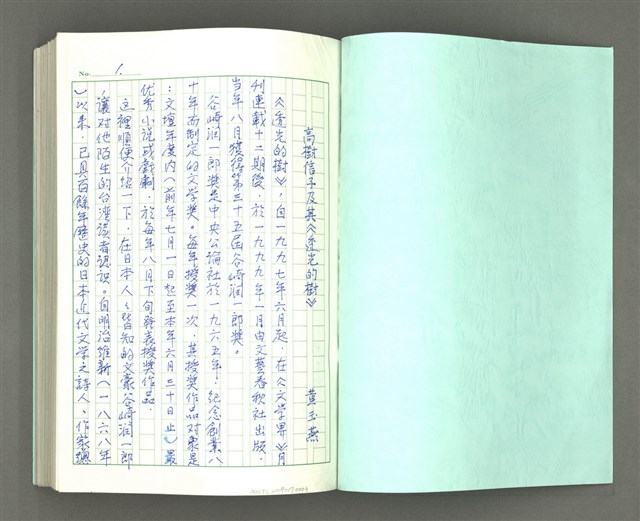 No. 1.
高樹信子及其《透光的樹》
黃玉燕
《透光的樹》,自一九九七年六月起,在《文学界》月
刊連載十二期後,於一九九九年一月由文藝春秋社出版,
当年八月獲得第三十五届谷崎润一郎獎。
谷崎润一郎獎是中央公論社於一九六五年,紀念創業八
十年而制定的文学獎。每年授獎一次,其授獎作品对象是
:文壇年度内(前年七月一日起至本年六月三十日止)最
优秀小说或戲劇,於每年八月下旬發表授獎作品。
这裡順便介紹一下,在日本人人皆知的文豪谷崎润一郎
,讓对他陌生的台湾读者認识。自明治維新(一八六八年
)以来,已具百餘年歴史的日本近代文学之詩人、作家總